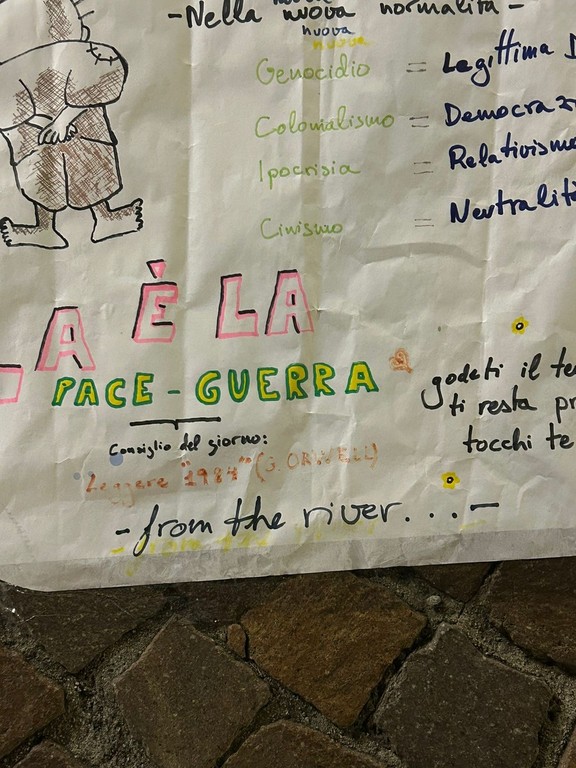 nuova
- Nella nuova normalità -
nuova
nuova
Genocidio = Legittima
Colonialismo =
Ipocrisia = Relativismo
Cinismo = Neutralità
A È LA
PACE - GUERRA
godeti il
ti resta
tocchi te
Consiglio del giorno:
Leggere "1984" (G. ORWELL)
- from the river... -